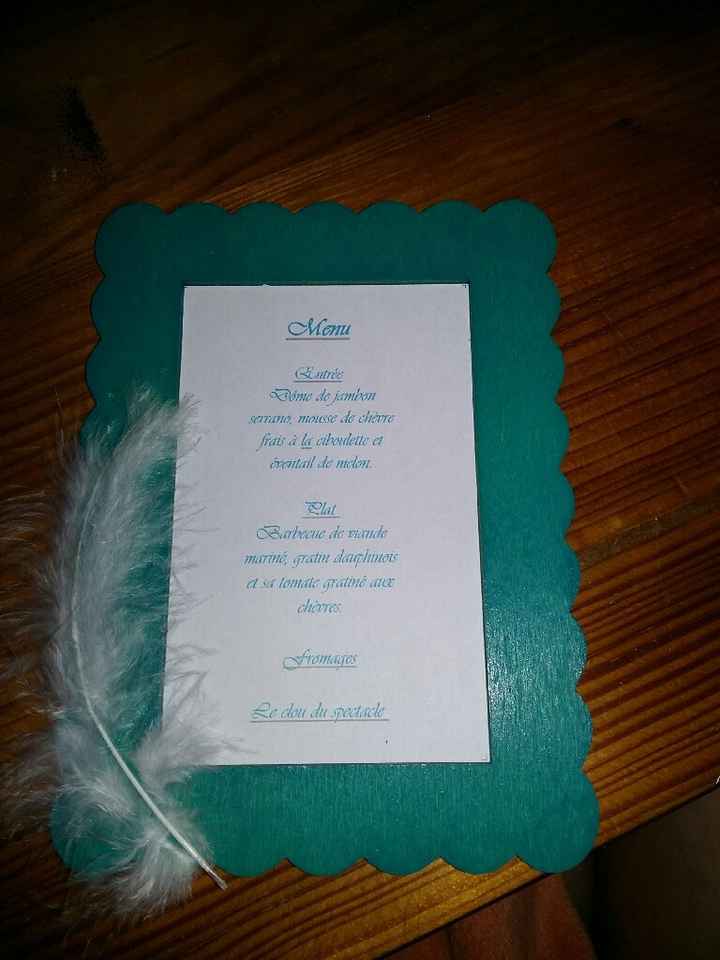 Menu
Entrée
Dôme de jambon
serrano, mousse de chèvre
frais à la ciboulette et
éventail de melon.
Plat
Barbecue de viande
mariné, gratin dauphinois
et sa tomate gratiné aux
chèvres.
Fromages
Le clou du spectacle